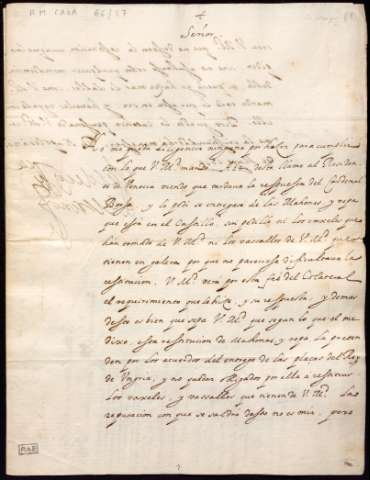 R M CAXA 66/57
Señor
No me queda diligencia ninguna por hazer para cumplir
con lo que V. Md. manda
de Venecia viendo que tardava la respuesta del Cardenal
Borja, y le pedi la entrega de las Mahonas, y ropa
que esta en el Castillo, sin pedille ni los vaxeles que
han tomado de V. Md. ni los vassallos de V. Md. que
tienen en galera por que no pareciesse dificultava la
restitucion, V. Md. vera por essa fee del Colateral
el requirimiento que le hize, y su respuesta, y demas
desto es bien que sepa V. Md. que segun lo que el me
dixo, essa restitucion de Mahonas y ropa la preten
den por los acuerdos del entrego de las plaças del Rey
de Ungria, y no quedar obligados por ella a restituir
los vaxeles, y vassallos que tienen de V. Md. La
reputacion con que se saldrá desto no es mia, pero